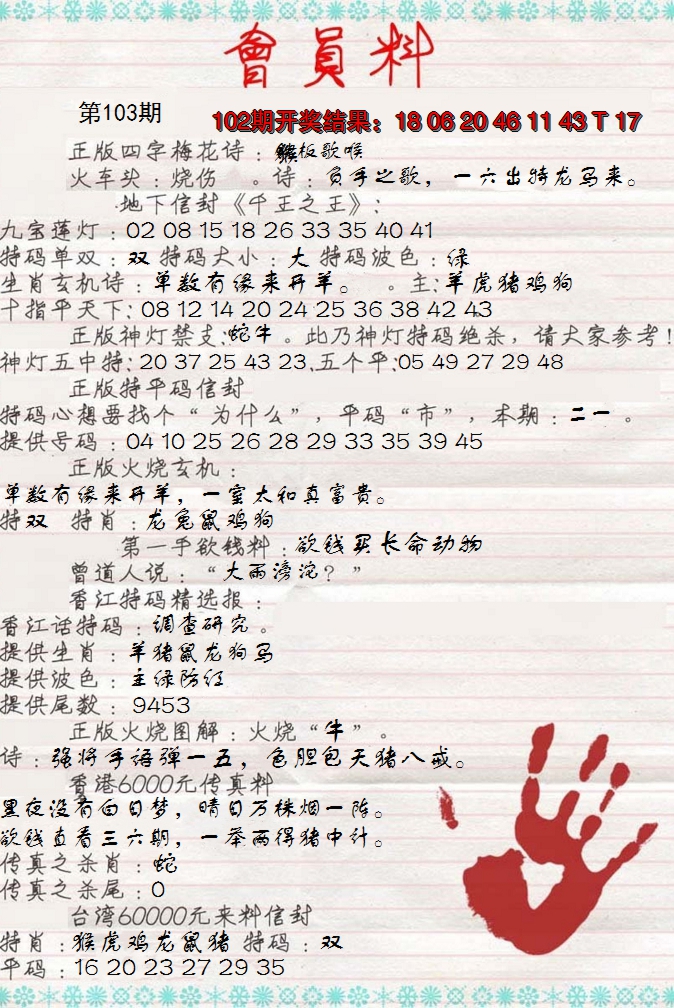 會員料
第103期
102期开奖结果：18 06 20 46 11 43 T 17
正版四字梅花诗：板歌喉
火车头：烧伤 。诗：负手之歌，一六出特龙马来。
地下信封《千王之王》：
九宝莲灯：02 08 15 18 26 33 35 40 41
特码单双：双 特码大小：大 特码波色：绿
生肖玄机诗：单数有缘来开羊。 。主：羊虎猪鸡狗
十指平天下：08 12 14 20 24 25 36 38 42 43
正版神灯禁支：蛇牛。此乃神灯特码绝杀，请大家参考！
神灯五中特：20 37 25 43 23.五个平：05 49 27 29 48
正版特平码信封
特码心想要找个“为什么”，平码“市”，本期：二一 。
提供号码：04 10 25 26 28 29 33 35 39 45
正版火烧玄机：
单数有缘来开羊，一室太和真富贵。
特双 特肖：龙兔鼠鸡狗
第一手欲钱料：欲钱买长命动物
曾道人说：“大雨滂沱？”
香江特码精选报：
香江话特码：调查研究。
提供生肖：羊猪鼠龙狗马
提供波色：主绿防红
提供尾数：9453
正版火烧图解：火烧“牛”。
诗：强将手语弹一五，色胆包天猪八戒。
香港6000元传真料
黑夜没有白日梦，晴日万株烟一阵。
欲钱直看三六期，一举两得猪中计。
传真之杀肖：蛇
传真之杀尾：0
台湾60000元来料信封
特肖：猴虎鸡龙鼠猪 特码：双
平码：16 20 23 27 29 35